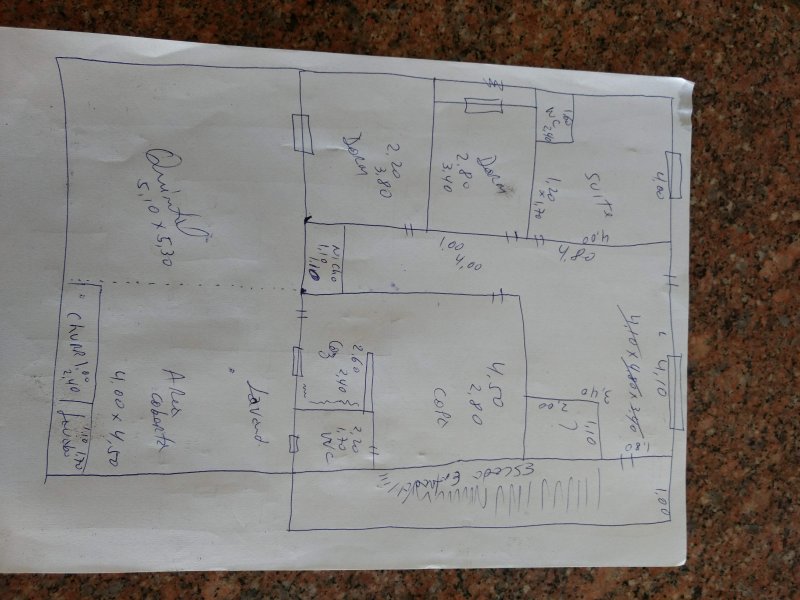 Quintal
5,10 x 5,30
Dorm
2,20
3,80
Dorm
2,80
3,40
1,00
WC
2,40
Suite
1,20
x 1,70
4,00
4,00
4,80
1,00
4,00
Nicho
1,10
1,10
4,10
4,50
2,80
Copa
1,10
2,00
2,40
?
1,00
1,00
Coz
2,60
2,40
2,20
1,70
WC
Escada
Lavand
Area
coberta
4,00 x 4,50
Churr
1,00
2,40
1,10
1,70